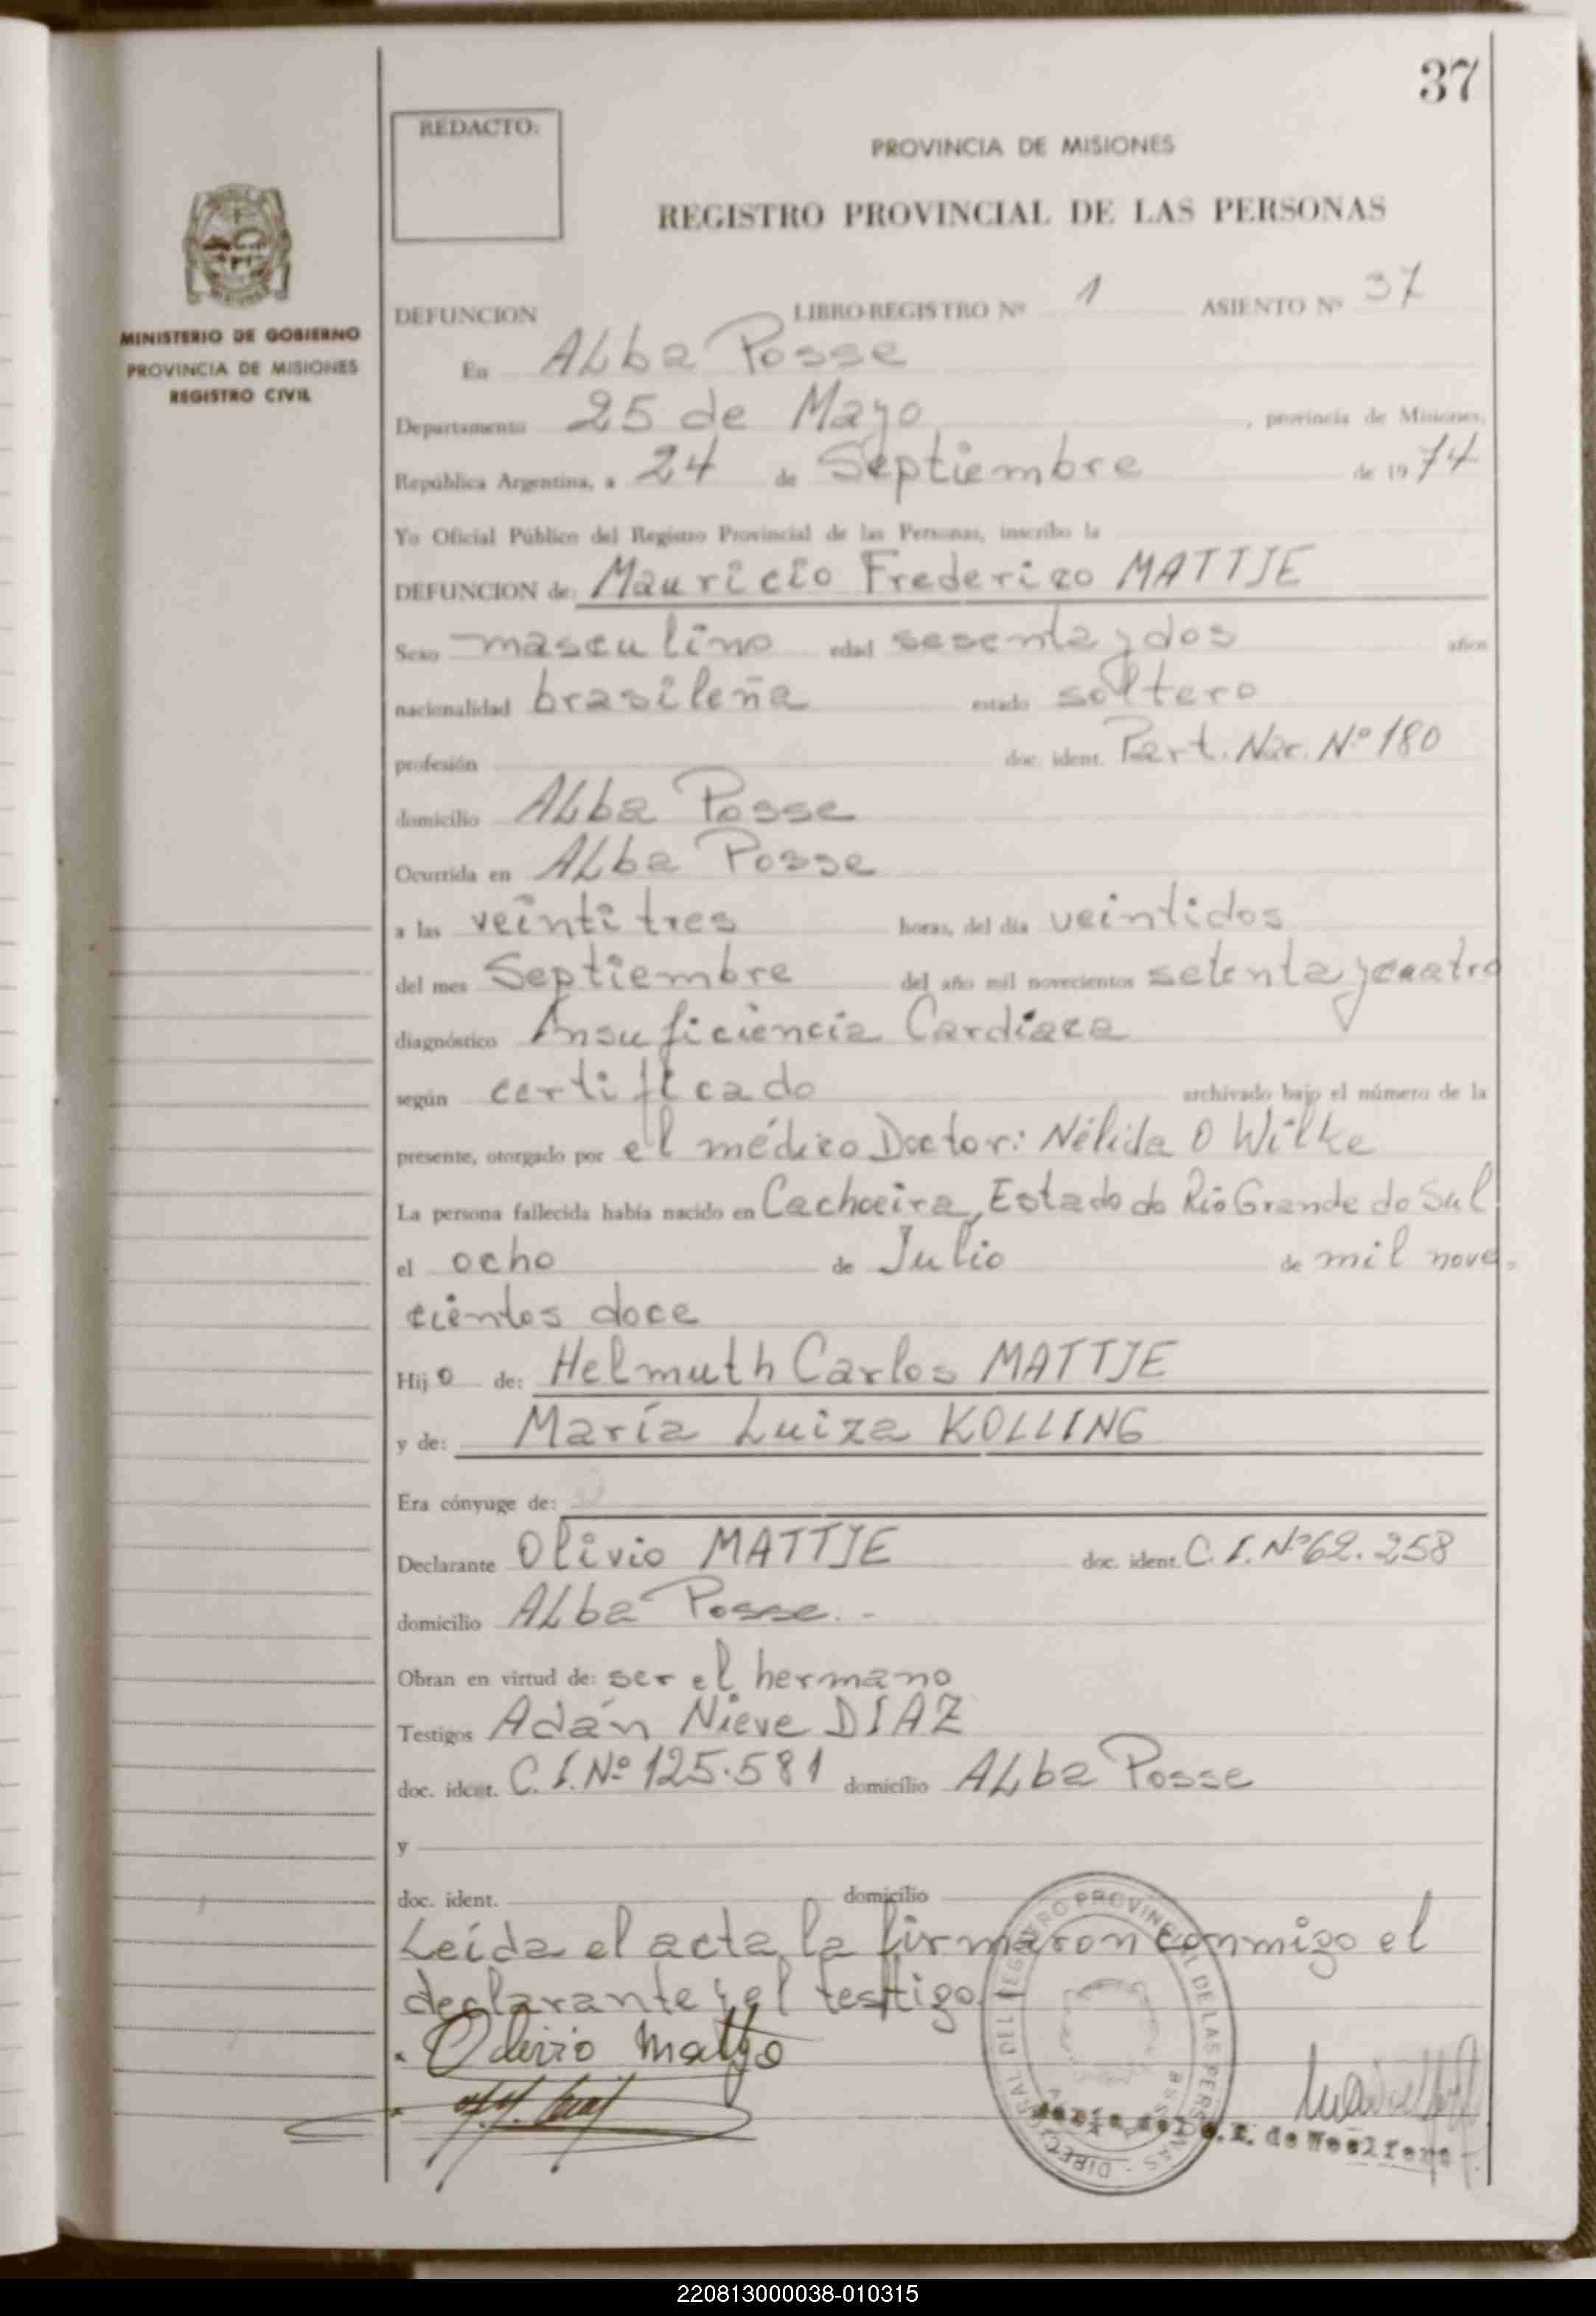 37
REDACTO:
PROVINCIA DE MISIONES
REGISTRO PROVINCIAL DE LAS PERSONAS
MINISTERIO DE GOBIERNO
PROVINCIA DE MISIONES
REGISTRO CIVIL
DEFUNCION LIBRO-REGISTRO Nº 1 ASIENTO Nº 37
En ALba Posse
Departamento 25 de Mayo, provincia de Misiones,
República Argentina, a 24 de Septiembre de 1974
Yo Oficial Público del Registro Provincial de las Personas, inscribo la
DEFUNCION de: Mauricio Frederico MATTJE
Sexo masculino edad sesenta y dos años
nacionalidad brasileña estado soltero
profesión doc. ident. Part. Nac. Nº 180
domicilio ALba Posse
Ocurrida en ALba Posse
a las veintitres horas, del día veintidos
del mes Septiembre del año mil novecientos setenta y cuatro
diagnóstico Insuficiencia Cardiaca
según certificado archivado bajo el número de la
presente, otorgado por el médico Doctor: Nélida O Wilke
La persona fallecida había nacido en Cachoeira, Estado do Rio Grande do Sul
el ocho de Julio de mil nove
cientos doce
Hijo de: Helmuth Carlos MATTJE
y de: María Luiza KOLLING
Era cónyuge de:
Declarante Olivio MATTJE doc. ident. C. I. Nº 62.258
domicilio ALba Posse.-
Obran en virtud de: ser el hermano
Testigos Adán Nieve DIAZ
doc. ident. C. I. Nº 125.581 domicilio ALba Posse
y
doc. ident. domicilio
Leída el acta, la firmaron conmigo el
declarante y el testigo
Olivio Mattje
DIRECCION GRAL DEL REGISTRO PROVINCIAL DE LAS PERSONAS
de Woelfert
220813000038-010315